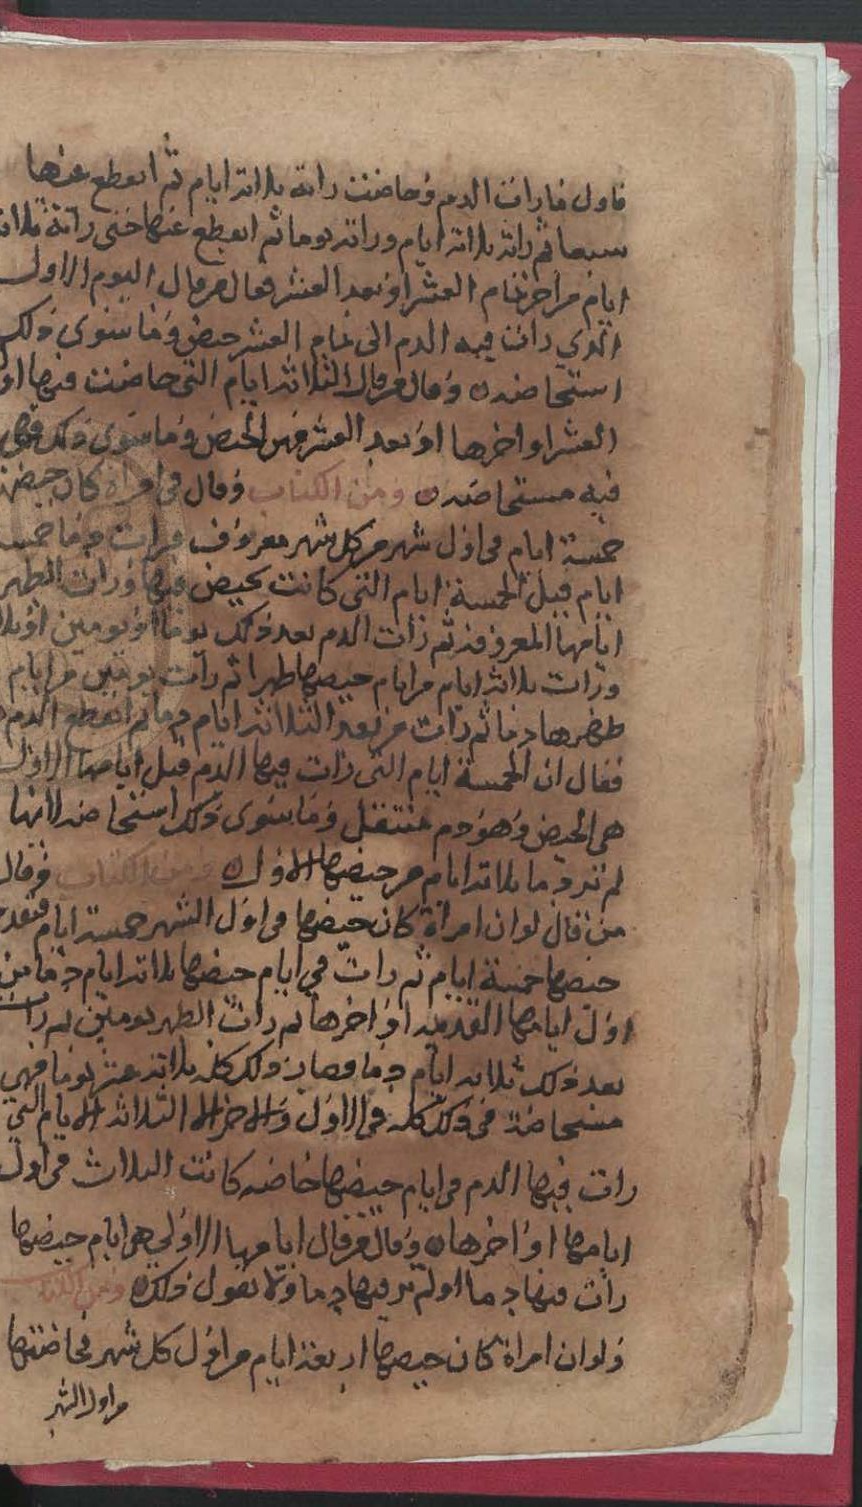 فاول ما رات الدم وحاضت راته ثلاثة ايام ثم انقطع عنها
سبعا ثم راته ثلاثة ايام وراته يوما ثم انقطع عنها حتى راته
ايام من اخر تمام العشر او بعد العشر فقال من قال اليوم الاول
الذي رات فيه الدم الى تمام العشر حيض وما سوى ذلك
استحاضه وقال من قال الثلاثة ايام التي حاضت فيها
العشر او اخرها او بعد العشر فهن الحيض وما سوى ذلك فهي
فيه مستحاضه ومن الكتاب وقال في امراة كان
خمسة ايام في اول شهر من كل شهر معروف فرات دما
ايام قبل الخمسة ايام التي كانت تحيض فيها ورات الطهر
ايامها المعروفة ثم رات الدم بعد ذلك يوما او يومين
ورات ثلاثة ايام من ايام حيضها طهرا ثم رات يومين من ايام
طهرها دما ثم رات من بعد الثلاثة ايام دما ثم انقطع الدم
فقال ان الخمسة ايام التي رات فيها الدم قبل ايامها الاول
هي الحيض وهو دم منتقل وما سوى ذلك استحاضه لانها
لم تر دما ثلاثة ايام من حيضها الاول ومن الكتاب وقال
من قال لو ان امراة كان حيضها في اول الشهر خمسة ايام
حيضها خمسة ايام ثم رات في ايام حيضها ثلاثة ايام دما من
اول ايامها القديمه او اخرها ثم رات الطهر يومين ثم رات
بعد ذلك ثلاثة ايام دما فصار ذلك كله ثلاثة عشر يوما فهي
مستحاضة في ذلك كله في الاول والاخر الا الثلاثة الايام التي
رات فيها الدم في ايام حيضها خاصه كانت الثلاث في اول
ايامها او اخرها وقال من قال ايامها الاولي هي ايام حيضها
رات فيها دما او لم تر فيها دما ولا نقول ذلك ومن الكتاب
ولو ان امراة كان حيضها اربعة ايام من اول كل شهر فحاضتها
من اول الشهر